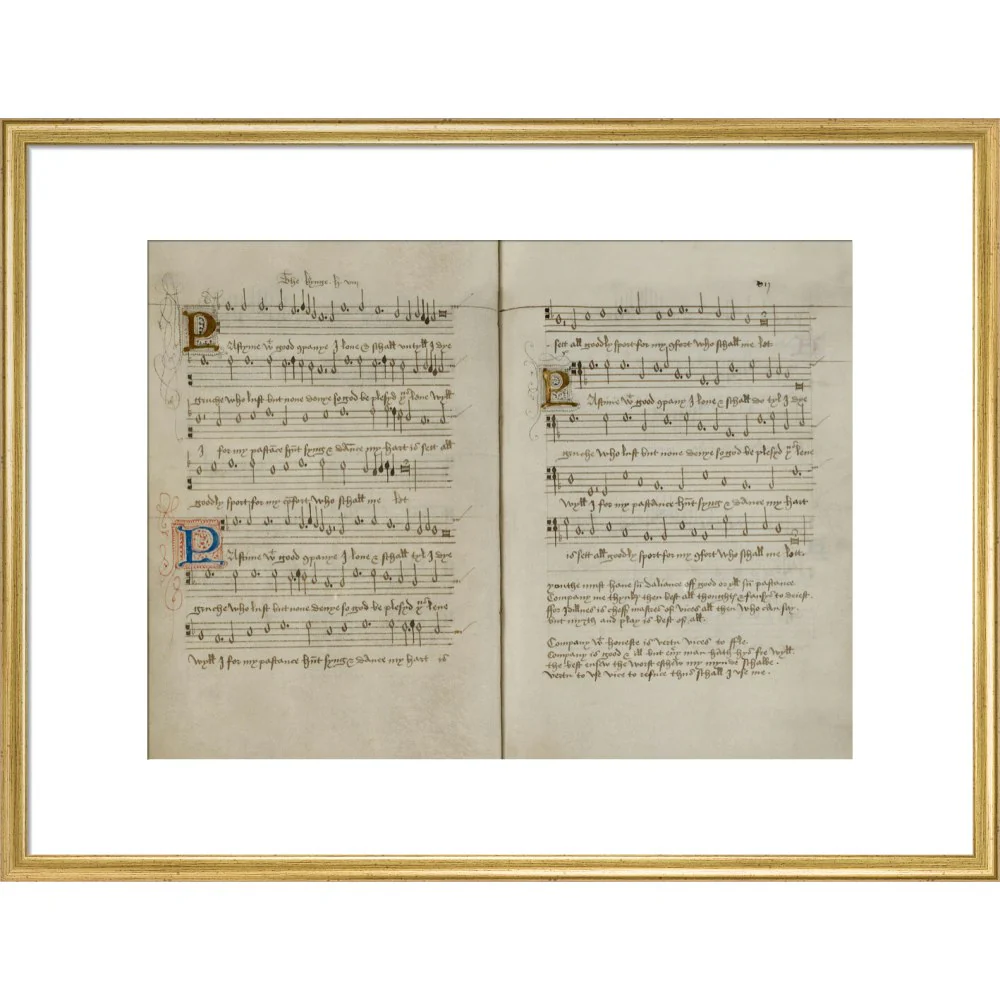 The kynge .h. viii
Pastyme wt good companye I love & schall untyll I dye
gruche who lust but none denye so god be plesyd thus leve wyll
I for my pastance hunt syng & dance my hart is sett all
goodly sport for my comfort who schall me let
Pastyme wt good companye I love & schall tyl I dye
gruche who lust but none denye so god be plesyd thus leve
wyll I for my pastance hunt syng & dance my hart is
sett all goodly sport for my comfort who schall me let
Pastyme wt good company I love & schall tyl I dye
gruche who lust but none denye so god be plesyd thus leve
wyll I for my pastance hunt syng & dance my hart
is sett all goodly sport for my comfort who schall me let
youthe must have sum daliance off good or yll sum pastance
Company me thynks then best all thoughts & fansys to deiest.
ffor Idlenes is cheff mastres of vices all then who can say.
but myrth and play is best of all.
Company wt honeste is vertu vices to ffle.
Company is good & ill but every man hath hys fre wyll
the best ensew the worst eschew my mynde schalbe.
vertu to use vice to refuce thus schall I use me.